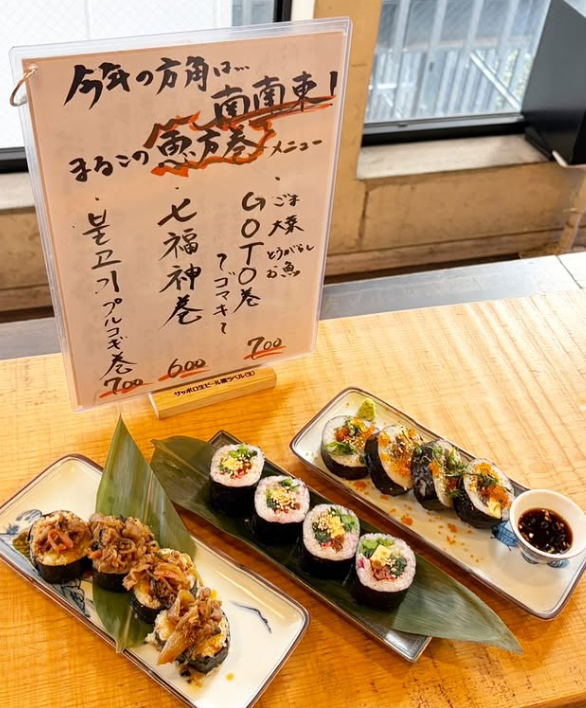 今年の方角は…
南南東!
まるこの恵方巻メニュー
・GOTO巻
ごま
大葉
とうがらし
お魚
〜ゴマキ〜
700
・七福神巻
600
・불고기プルコギ巻
700
サッポロ生ビール黒ラベル〈生〉